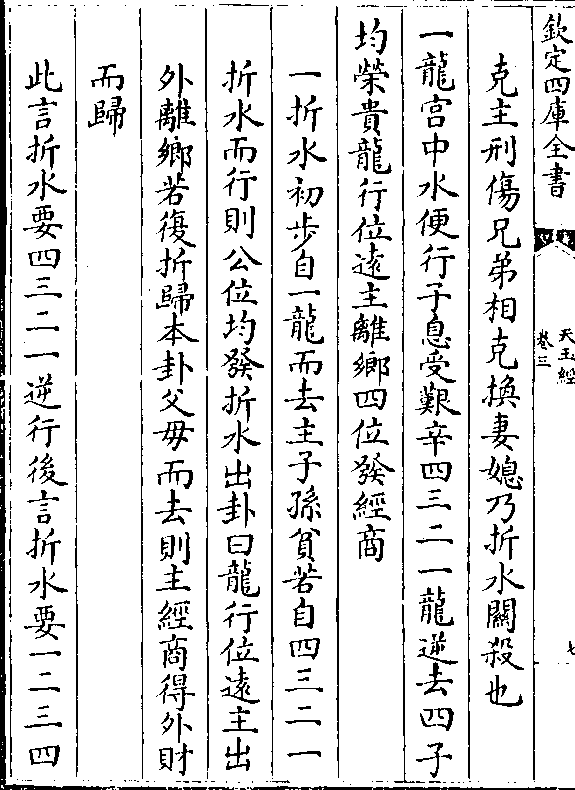 欽定四庫全書
天玉經
卷三
七
克主刑傷兄弟相克換妻媳乃折水關殺也
一龍宫中水便行子息受艱辛四三二一龍逆去四子
均榮貴龍行位逺主離鄉四位發經商
一折水初步自一龍而去主子孫貧若自四三二一
折水而行則公位均發折水出卦曰龍行位逺主出
外離鄉若復折歸本卦父毋而去則主經商得外財
而歸
此言折水要四三二一逆行後言折水要一二三四